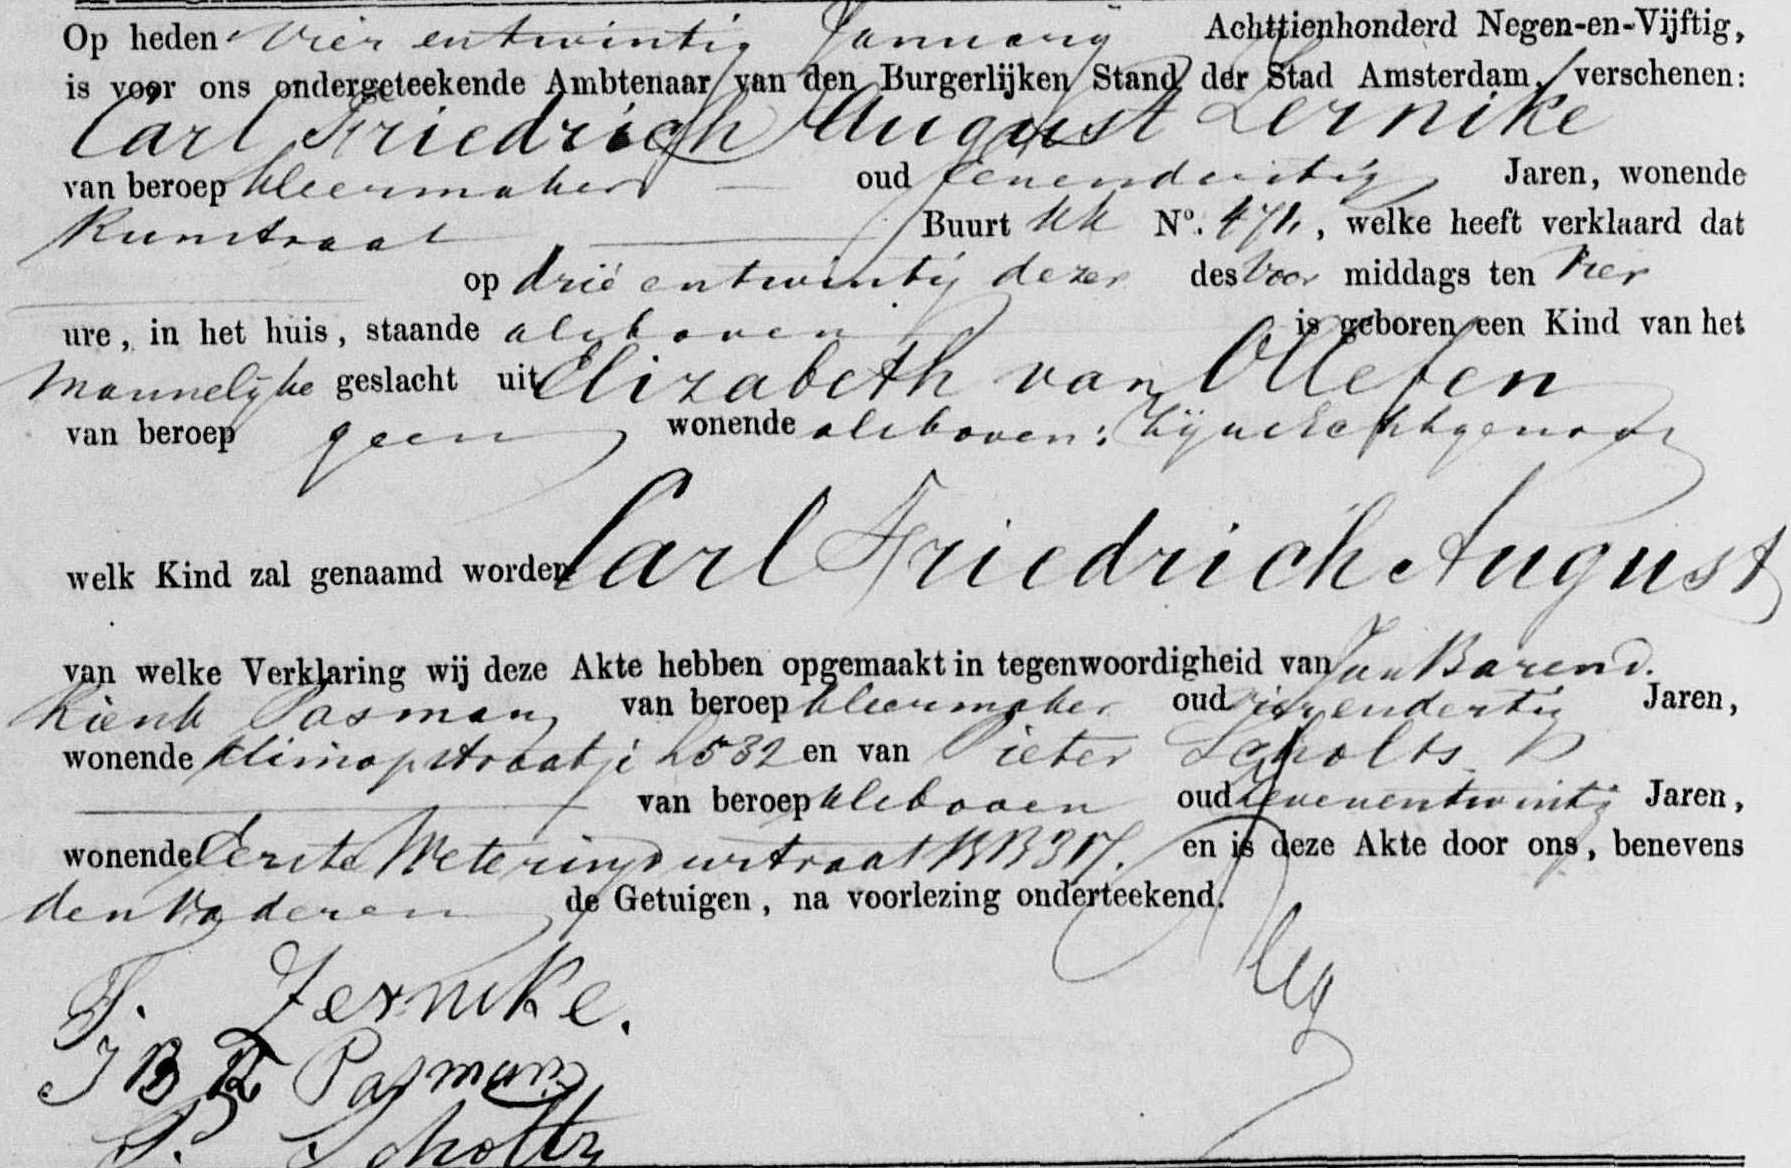 Op heden vier entwintig January Achttienhonderd Negen-en-Vijftig,
is voor ons ondergeteekende Ambtenaar van den Burgerlijken Stand der Stad Amsterdam, verschenen:
Carl Friedrich August Zernike
van beroep kleermaker oud eenendertig Jaren, wonende
Buurt KK No. 471, welke heeft verklaard dat
op drië entwintig dezer des Voor middags ten vier
ure, in het huis, staande alsboven is geboren een Kind van het
Mannelijke geslacht uit Elizabeth van Ollefen
van beroep geen wonende alsboven: Zijne Echtgenoot
welk Kind zal genaamd worden Carl Friedrich August
van welke Verklaring wij deze Akte hebben opgemaakt in tegenwoordigheid van Jan Barend
Rienk Pasman van beroep kleermaker oud vierendertig Jaren,
wonende 532 en van Pieter Scholts
van beroep alsboven oud zevenentwintig Jaren,
wonende Eerste Weteringdwrstraat BB 317. en is deze Akte door ons, benevens
den Vader en de Getuigen, na voorlezing onderteekend.
F. Zernike.
J B R Pasman
P. Scholtz